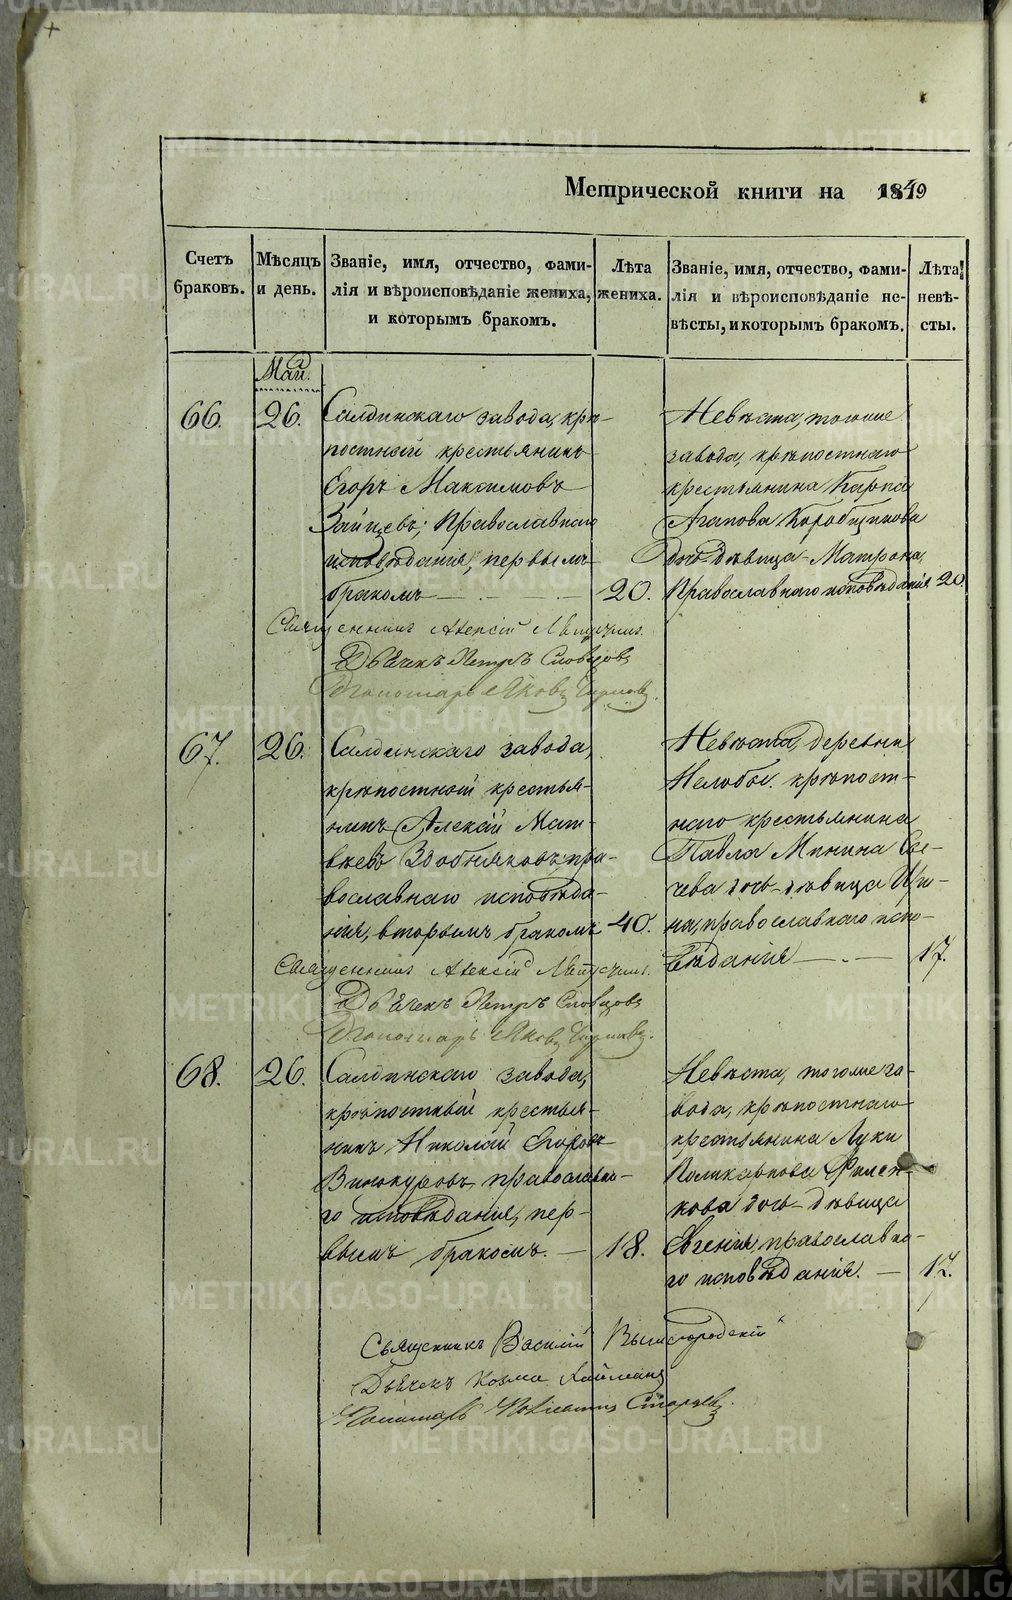 Метрической книги на 1849
Счетъ браковъ.
Мѣсяцъ и день.
Званіе, имя, отчество, фами-
лія и вѣроисповѣданіе жениха,
и которымъ бракомъ.
Лѣта жениха.
Званіе, имя, отчество, фами-
лія и вѣроисповѣданіе не-
вѣсты, и которымъ бракомъ.
Лѣта невѣ-
сты.
Май.
66. 26.
Салдинскаго завода, крѣ-
постной крестьянинъ
Егоръ Максимовъ
Зайцевъ; Православнаго
исповѣданія, первымъ
бракомъ 20.
Невѣста, тогоже
завода, крѣпостнаго
крестьянина Карпа
Агапова Коробщикова
дочь-дѣвица Матрона,
Православнаго исповѣданія 20.
Священникъ Алексій
Дьячекъ Петръ Словцовъ
Пономарь Яковъ
67. 26.
Салдинскаго завода,
крѣпостной крестья-
нинъ Алексѣй Мат-
вѣевъ Здобняковъ, пра-
вославнаго исповѣда-
нія, вторымъ бракомъ 40.
Невѣста, деревни
Нелобы. крѣпост-
наго крестьянина
Павла Минина
дочь-дѣвица Ири-
на, православнаго испо-
вѣданія 17.
Священникъ Алексій
Дьячекъ Петръ Словцовъ
Пономарь Яковъ
68. 26.
Салдинскаго завода,
крѣпостный крестья-
нинъ Николай Егоровъ
Винокуровъ, православна-
го исповѣданія, пер-
вымъ бракомъ. 18.
Невѣста, тогоже за-
вода, крѣпостнаго
крестьянина Луки
Поликарпова Филен-
кова дочь-дѣвица
Евгенія, православна-
го исповѣданія. 17.
Священникъ Василій Вышегородскій
Дьячекъ Козма
Пономарь
METRIKI.GASO-URAL.RU